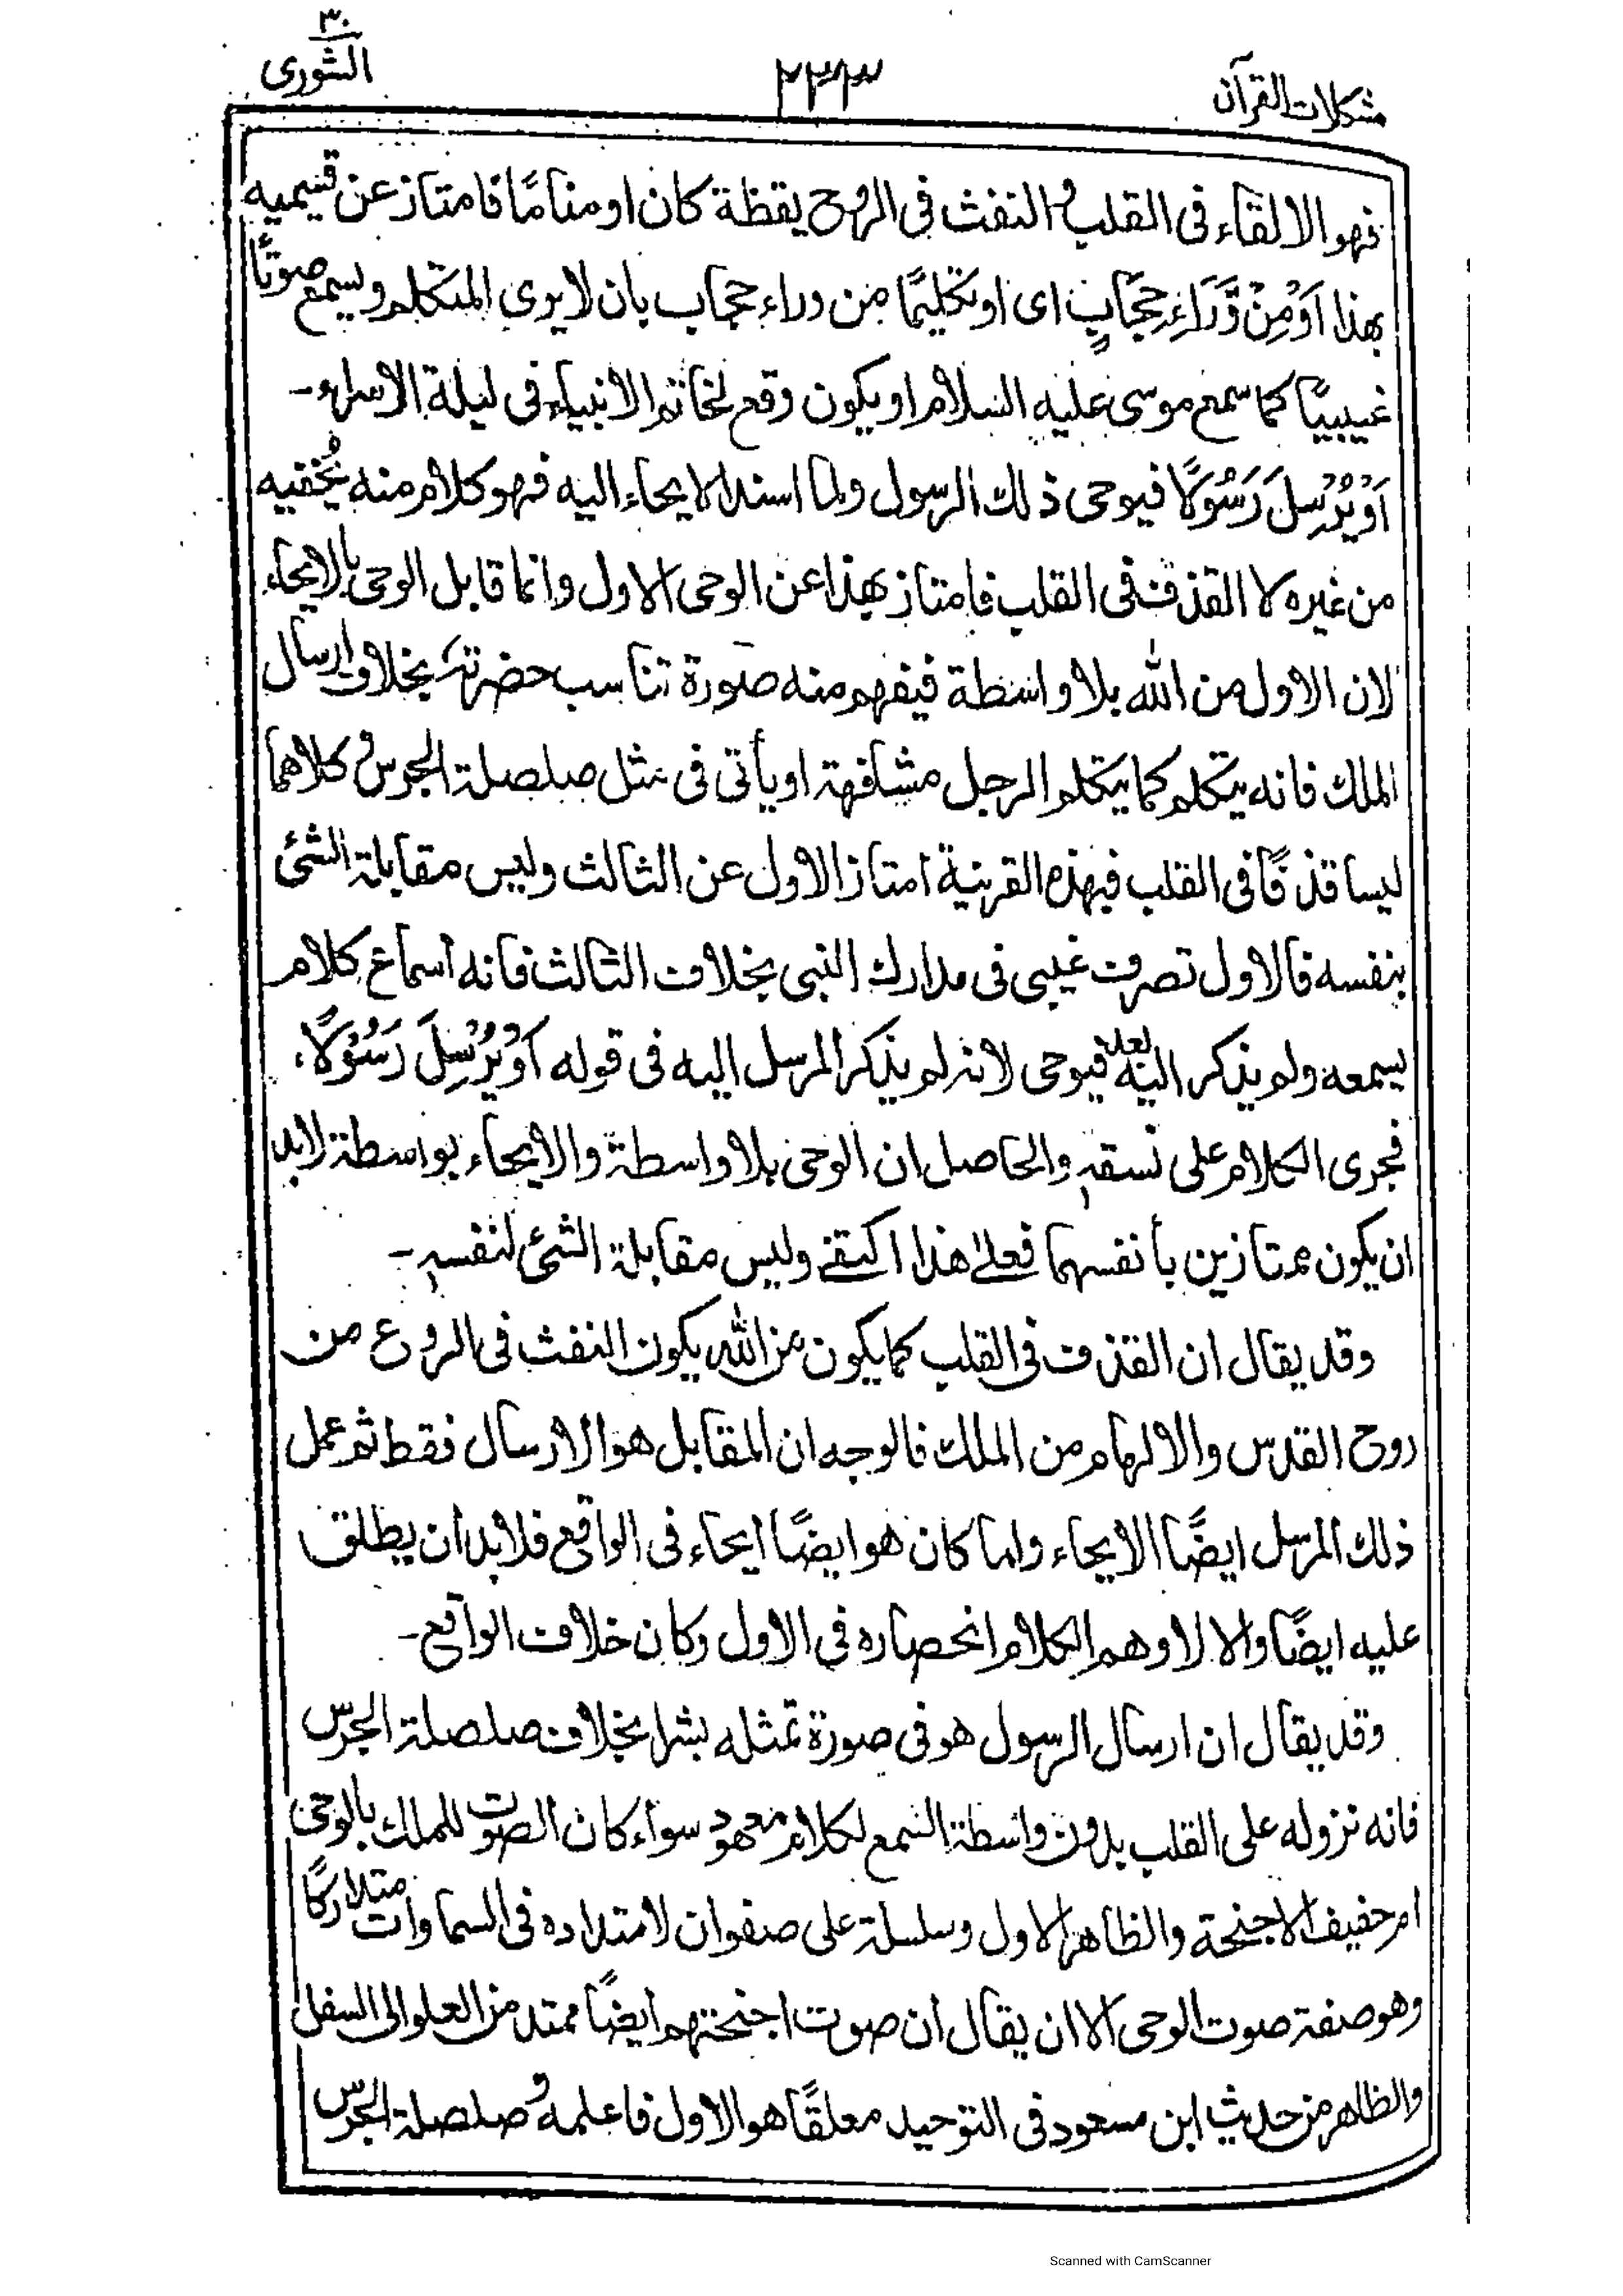 مشكلات القرآن
٢٣٣
٣٠
الشورى
فهو الالقاء فى القلب والنفث فى الروح يقظة كان او مناما فامتاز عن قسيميه
بهذا اَوْمِنْ وَّرَاءِ حِجَابٍ اى او تكليمًا من وراء حجاب بان لا يرى المتكلم ويسمع صوتًا
غيبيًا كما سمع موسى عليه السلام او يكون وقع لخاتم الانبياء فى ليلة الاسراء -
اَوْ يُرْسِلَ رَسُوْلًا فيوحى ذلك الرسول ولما اسند الايحاء اليه فهو كلام منه يُخفيه
من غيره لا القذف فى القلب فامتاز بهذا عن الوحى الاول وانما قابل الوحى بالايحاء
لان الاول من الله بلا واسطة فيفهم منه صورة تناسب حضرته بخلاف ارسال
الملك فانه يتكلم كما يتكلم الرجل مشافهة او يأتى فى مثل صلصلة الجرس وكلاهما
ليسا قذفًا فى القلب فبهذه القرينة امتاز الاول عن الثالث وليس مقابلة الشئ
بنفسه فالاول تصرف غيبى فى مدارك النبى بخلاف الثالث فانه اسماع كلام
يسمعه ولم يذكر اليه بعد فيوحى لانه لم يذكر المرسل اليه فى قوله اَوْ يُرْسِلَ رَسُوْلًا،
فجرى الكلام على نسقه والحاصل ان الوحى بلا واسطة والايحاء بواسطة لابد
ان يكون ممتازين بأنفسهما فعلى هذا اكتفى وليس مقابلة الشئ لنفسه -
وقد يقال ان القذف فى القلب كما يكون من الله يكون النفث فى الروع من
روح القدس والالهام من الملك فالوجه ان المقابل هو الارسال فقط ثم عمل
ذلك المرسل ايضًا الايحاء ولما كان هو ايضًا ايحاء فى الواقع فلابد ان يطلق
عليه ايضًا والا لاوهم الكلام انحصاره فى الاول وكان خلاف الواقع -
وقد يقال ان ارسال الرسول هو فى صورة تمثله بشرا بخلاف صلصلة الجرس
فانه نزوله على القلب بدون واسطة السمع لكلام معهود سواء كان الصوت للملك بالوحى
ام حفيف الاجنحة والظاهر الاول وسلسلة على صفوان لامتداده فى السماوات متداركًا
وهو صفة صوت الوحى الا ان يقال ان صوت اجنحتهم ايضًا ممتد من العلو الى السفل
والظاهر من حديث ابن مسعود فى التوحيد معلقًا هو الاول فاعلمه وصلصلة الجرس
Scanned with CamScanner